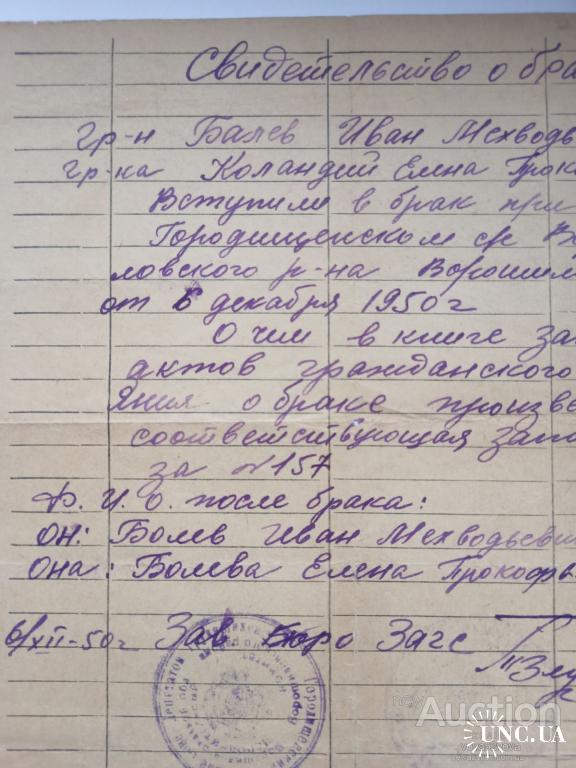 Свидетельство о бра
гр-н Балев Иван Мехводье
гр-ка Коландий Елна Проко
Вступили в брак при
Городищенском с/с
ловского р-на Ворошил
от 6 декабря 1950г
О чем в книге зап
актов гражданского
яния о браке произве
соответствующая запи
за №157
Ф. И. О. после брака:
он: Болев Иван Мехводьевич
она: Болева Елена Прокофь
6/XII-50г Зав Бюро Загс
Auction
UNC.UA